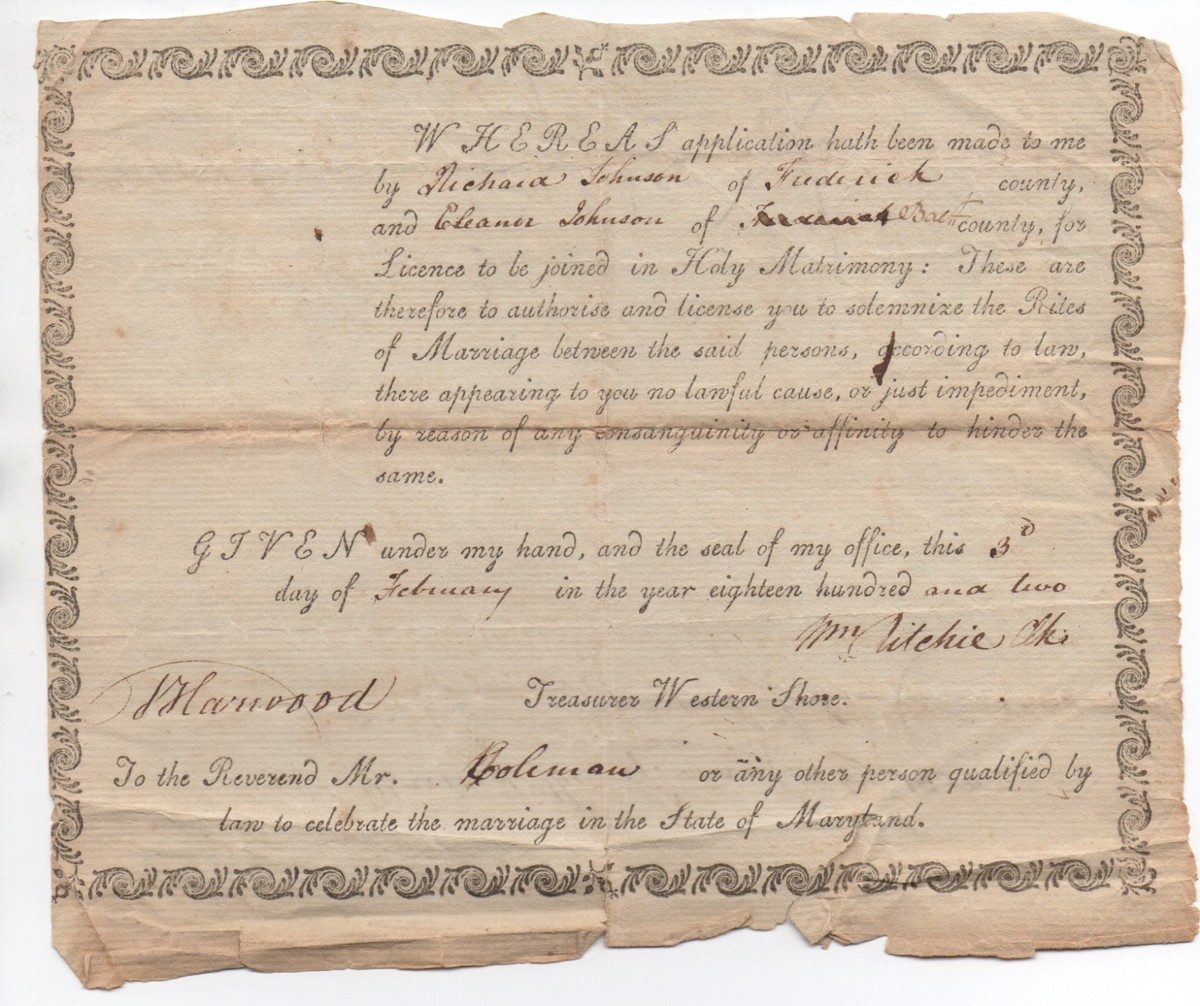 WHEREAS application hath been made to me
by Richard Johnson of Frederick county,
and Eleanor Johnson of Frederick Balt county, for
Licence to be joined in Holy Matrimony: These are
therefore to authorise and license you to solemnize the Rites
of Marriage between the said persons, according to law,
there appearing to you no lawful cause, or just impediment,
by reason of any consanguinity or affinity to hinder the
same.
GIVEN under my hand, and the seal of my office, this 3d
day of February in the year eighteen hundred and two
Wm Ritchie Clk.
Harwood
Treasurer Western Shore.
To the Reverend Mr. Coleman or any other person qualified by
law to celebrate the marriage in the State of Maryland.